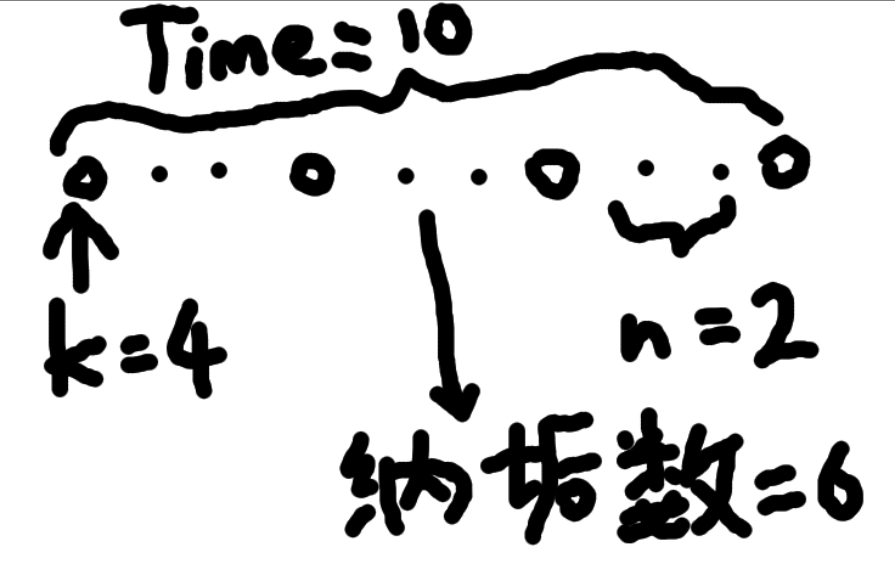 Time=10
k=4
n=2
纳垢数=6